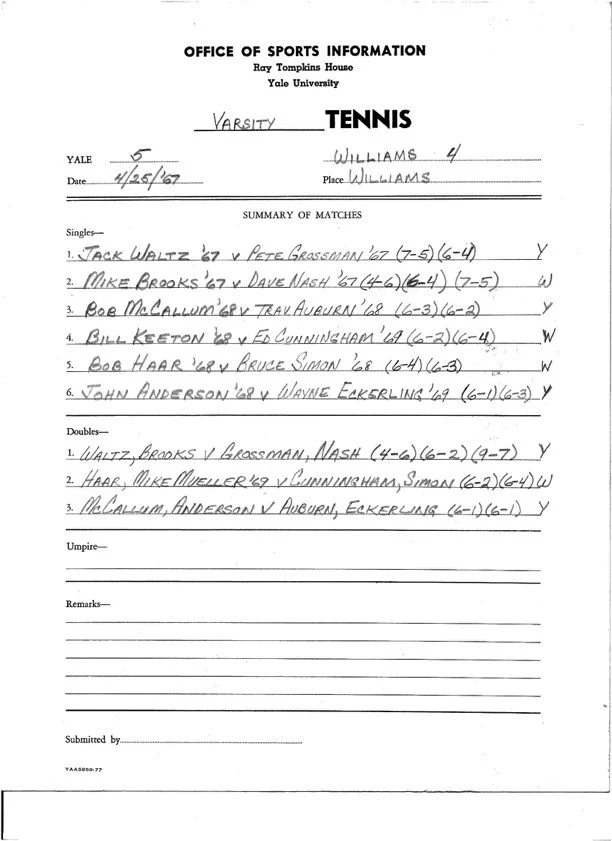 OFFICE OF SPORTS INFORMATION
Ray Tompkins House
Yale University
VARSITY TENNIS
YALE 5 WILLIAMS 4
Date 4/25/'67 Place WILLIAMS
SUMMARY OF MATCHES
Singles—
1. JACK WALTZ '67 v PETE GROSSMAN '67 (7-5)(6-4) Y
2. MIKE BROOKS '67 v DAVE NASH '67 (4-6)(6-4)(7-5) W
3. BOB McCALLUM '68 v TRAV AUBURN '68 (6-3)(6-2) Y
4. BILL KEETON '68 v ED CUNNINGHAM '69 (6-2)(6-4) W
5. BOB HAAR '68 v BRUCE SIMON '68 (6-4)(6-3) W
6. JOHN ANDERSON '68 v WAYNE ECKERLING '69 (6-1)(6-3) Y
Doubles—
1. WALTZ, BROOKS v GROSSMAN, NASH (4-6)(6-2)(9-7) Y
2. HAAR, MIKE MUELLER '69 v CUNNINGHAM, SIMON (6-2)(6-4) W
3. McCALLUM, ANDERSON v AUBURN, ECKERLING (6-1)(6-1) Y
Umpire—
Remarks—
Submitted by
YAA5859-77